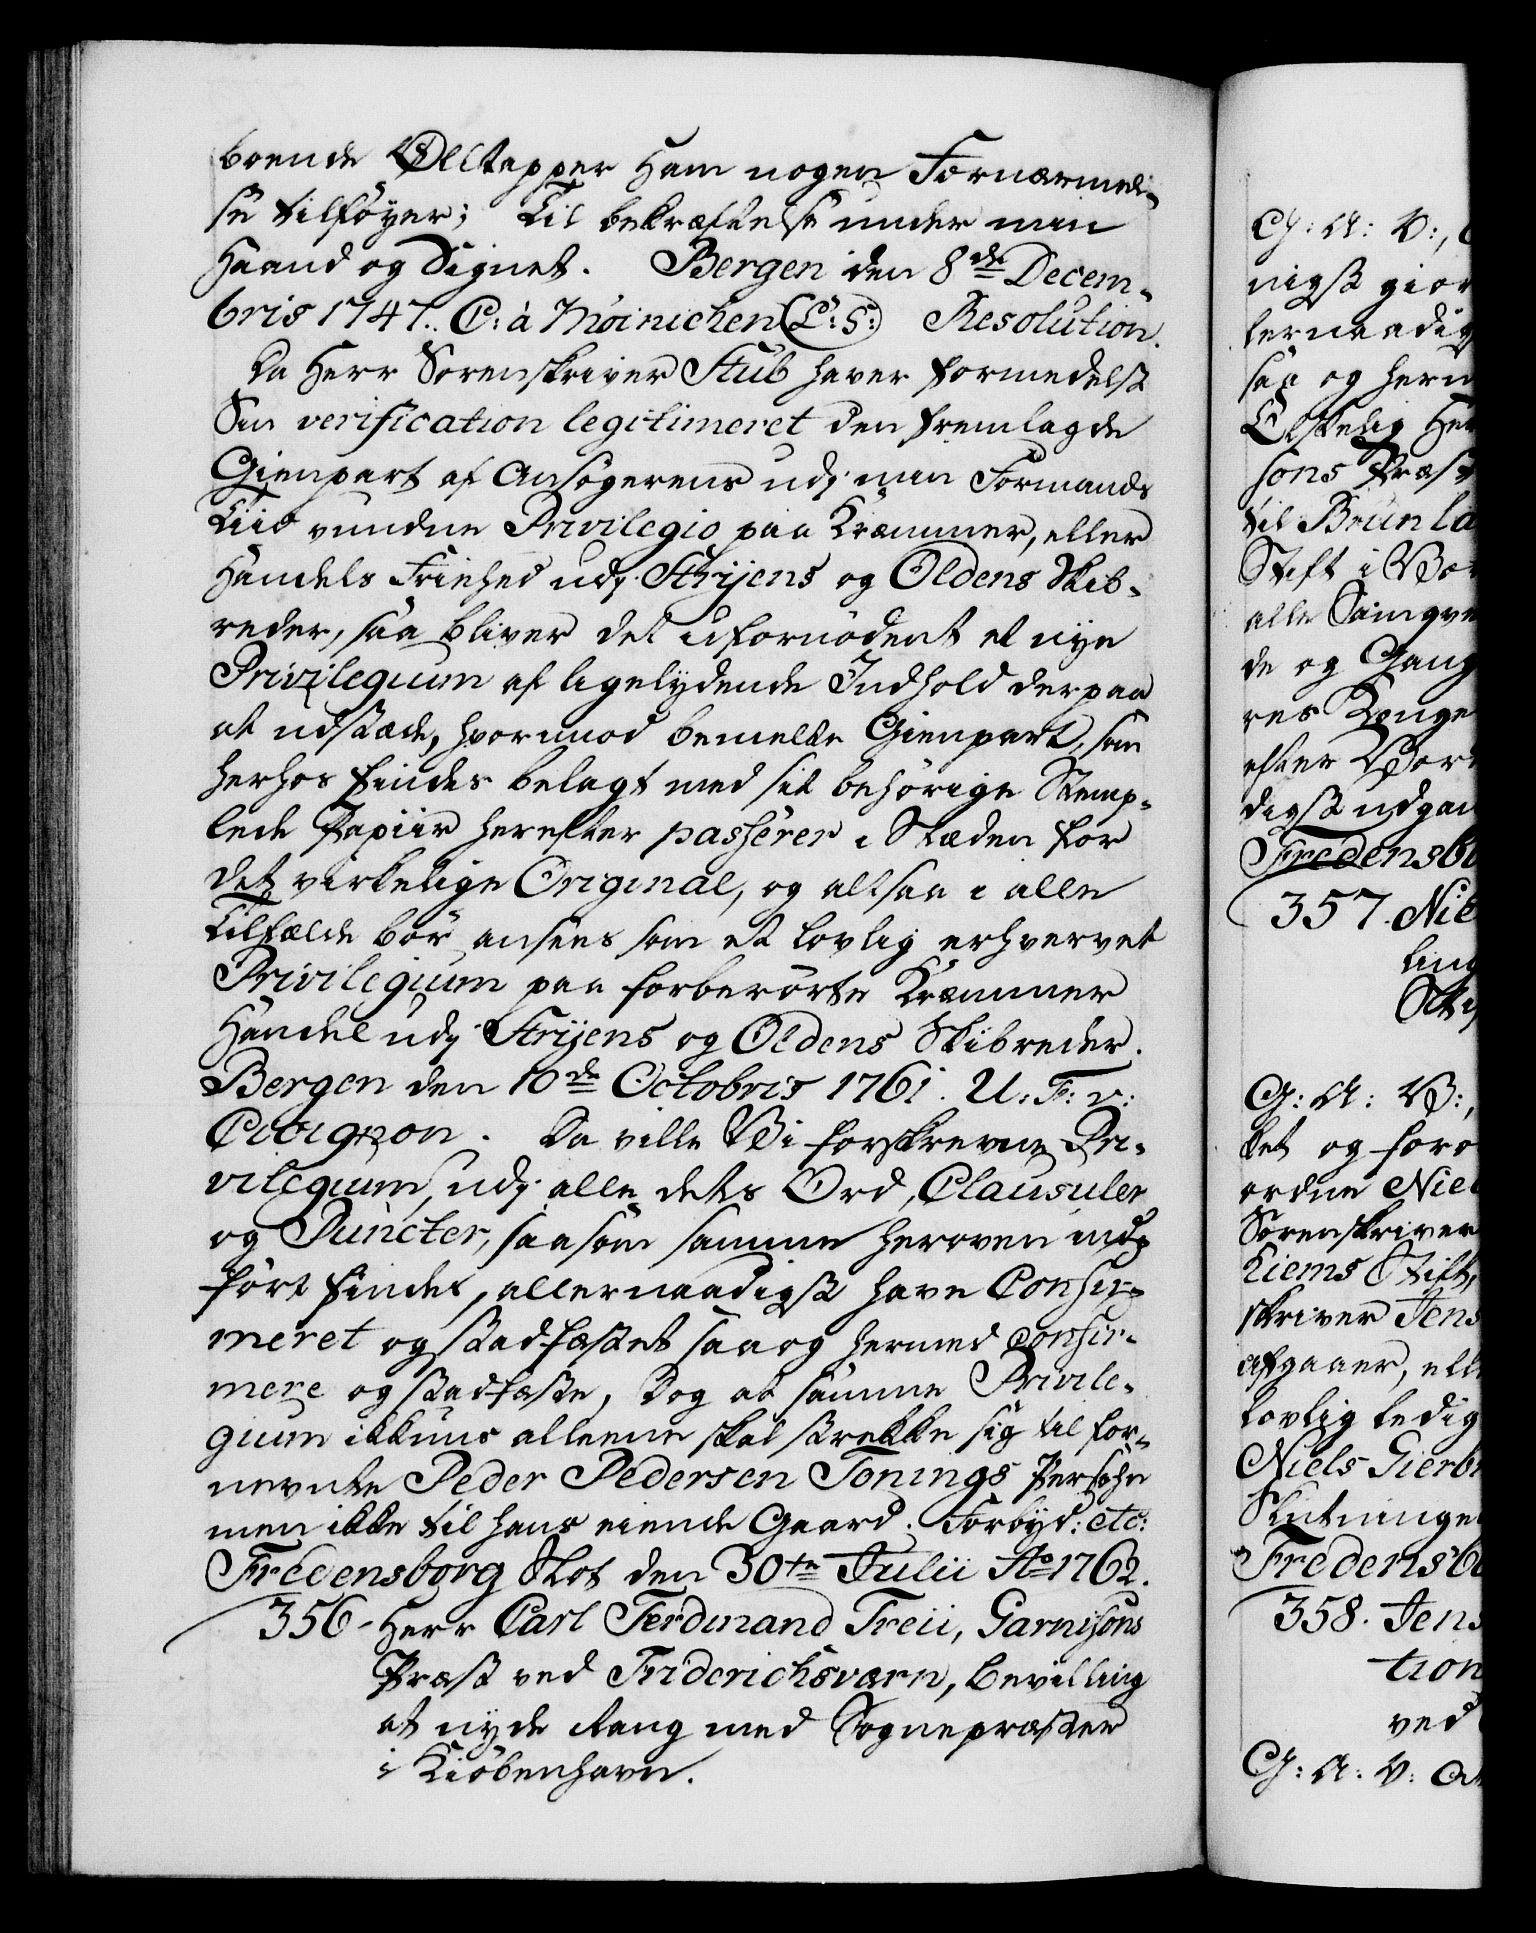 boende Ølltapper ham nogen Fornærmel-
se tilføyer; Til bekræftelse under min
Haand og Signet. Bergen den 8de Decem-
bris 1747. C: à Møinichen (L:S:) Resolution.
Da Herr Sorenskriver Stub haver formedelst
Sin verification legitimeret den fremlagde
Gienpart af Ansøgerens udj min Formands
Tiid vundne Privilegio paa Kræmmer, eller
Handels Friehed udj Strijens og Oldens Skib-
reder, saa bliver det ufornødent et nye
Privilegium af ligelydende Indhold derpaa
at udstæde, hvorimod bemelte Gienpart, som
herhos findes belagt med sit behørige Stemp-
lede Papiir herefter passerer i Stæden for
det virkelige Original, og altsaa i alle
Tilfælde bør ansees som et lovlig erhvervet
Privilegium paa forberørte Kræmmer
Handel udj Strijens og Oldens Skibreder.
Bergen den 10de Octobris 1761. U: F: v:
Cicignon. Da ville Vi forskrevne Pri-
vilegium, udj alle dets Ord, Clausuler
og Puncter, saasom samme heroven ind-
ført findes, allernaadigst have Confir-
meret og stadfæstet saa og hermed confir-
mere og stadfæste, Dog at samme Privile-
gium ikkuns alleene skal strække sig til for-
nevnte Peder Pedersen Tonings Persohn
men ikke til hans eiende Gaard. Forbyd: etc:
Fredensborg Slot den 30te Julii Ao 1762.
356- Herr Carl Ferdinand Freii, Garnisons
Præst ved Friderichsværn, Bevilling
at nyde Rang med Sognepræster
i Kiøbenhavn.
G: A: V:,
nigst gior
lernaadig
saa og herm
Elskelig Her
sons Præst
til Brunla
Stift i Vor
alle Sangve
de og Gang
res Konge
efter Vor
digst udgan
Fredensbo
357. Niel
ling
G: A: V:,
ket og foro
ordne Niel
Sorenskriver
hiems Stift,
skriver Jens
afgaaer, ell
lovlig ledig
Niels Gierb
Slutninge
Fredensbo
358. Jens
tion
ved
G: A: V: